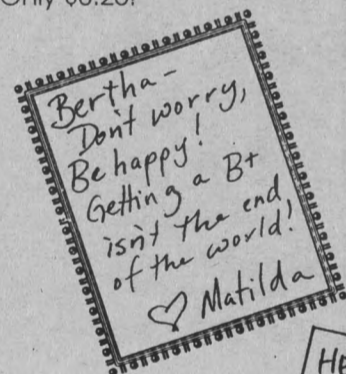 Only $3.25!
Bertha-
Don't worry,
Be happy!
Getting a B+
isn't the end
of the world!
♡ Matilda
HE